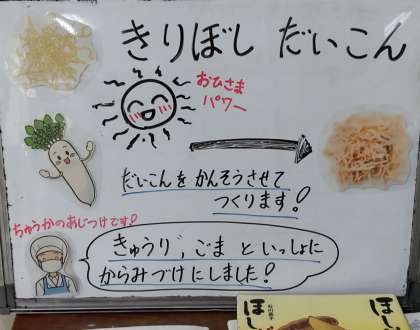 きりぼし だいこん
おひさま
パワー
だいこんを かんそうさせて
つくります!
ちゅうかのあじつけです!
きゅうり、ごま といっしょに
からみづけにしました!